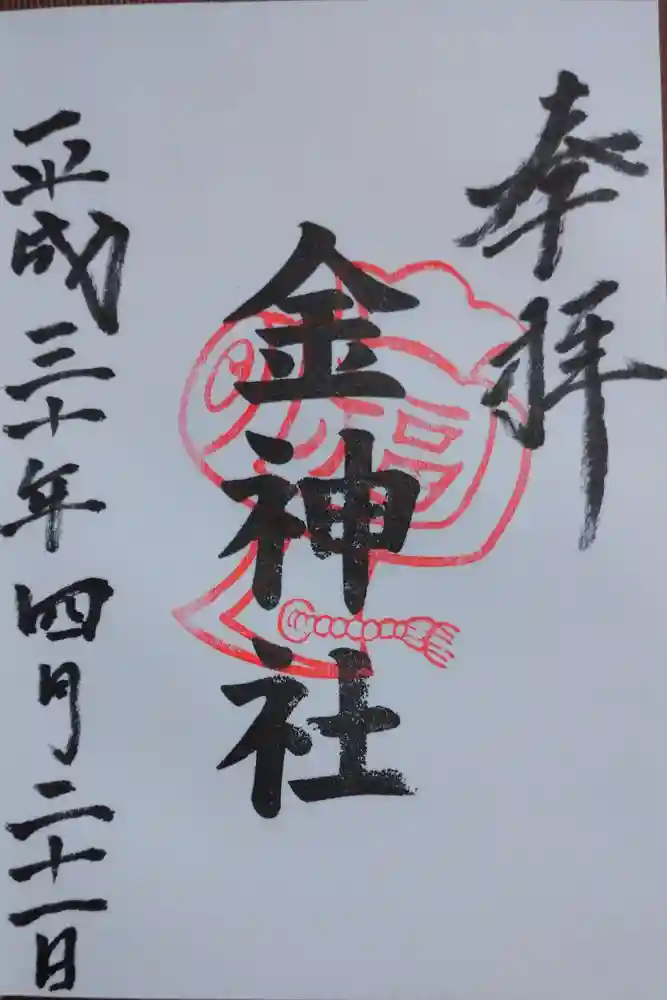 奉拝
金神社
福
平成三十年四月二十一日